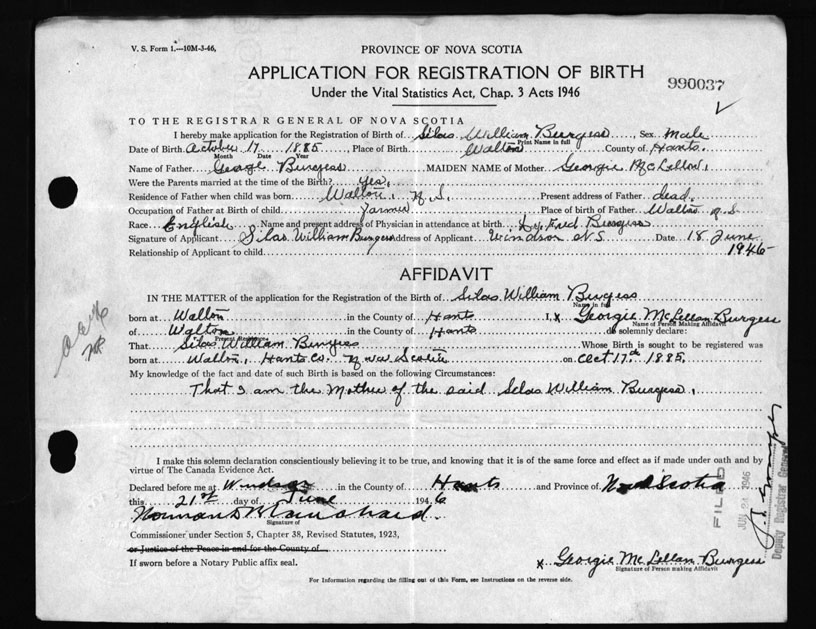 V. S. Form 1.—10M-3-46.
PROVINCE OF NOVA SCOTIA
APPLICATION FOR REGISTRATION OF BIRTH
990037
Under the Vital Statistics Act, Chap. 3 Acts 1946
TO THE REGISTRAR GENERAL OF NOVA SCOTIA
I hereby make application for the Registration of Birth of Silas William Burgess, Sex Male
Print Name in full
Date of Birth October 17 1885, Place of Birth Walton County of Hants.
Month Date Year
Name of Father George Burgess MAIDEN NAME of Mother Georgie McLellan.
Were the Parents married at the time of the Birth? Yes.
Residence of Father when child was born Walton, N.S. Present address of Father dead.
Occupation of Father at Birth of child Farmer Place of birth of Father Walton N.S
Race English Name and present address of Physician in attendance at birth Dr. Fred Burgess
Signature of Applicant Silas William Burgess Address of Applicant Windsor N.S. Date 18 June
1946
Relationship of Applicant to child
AFFIDAVIT
IN THE MATTER of the application for the Registration of the Birth of Silas William Burgess
Name in full
born at Walton in the County of Hants I, x Georgie McLellan Burgess
Name of Person Making Affidavit
of Walton in the County of Hants do solemnly declare:
Present Residence
That Silas William Burgess Whose Birth is sought to be registered was
born at Walton, Hants Co. Nova Scotia on Oct 17th 1885.
My knowledge of the fact and date of such Birth is based on the following Circumstances:
That I am the Mother of the said Silas William Burgess.
I make this solemn declaration conscientiously believing it to be true, and knowing that it is of the same force and effect as if made under oath and by
virtue of The Canada Evidence Act.
Declared before me at Windsor in the County of Hants and Province of Nova Scotia
this 21st day of June 1946
Norman D Blanchard
Signature of
Commissioner under Section 5, Chapter 38, Revised Statutes, 1923,
or Justice of the Peace in and for the County of
If sworn before a Notary Public affix seal.
x Georgie McLellan Burgess
Signature of Person making Affidavit
For Information regarding the filling out of this Form, see Instructions on the reverse side.
FILED
1946
Deputy Registrar General